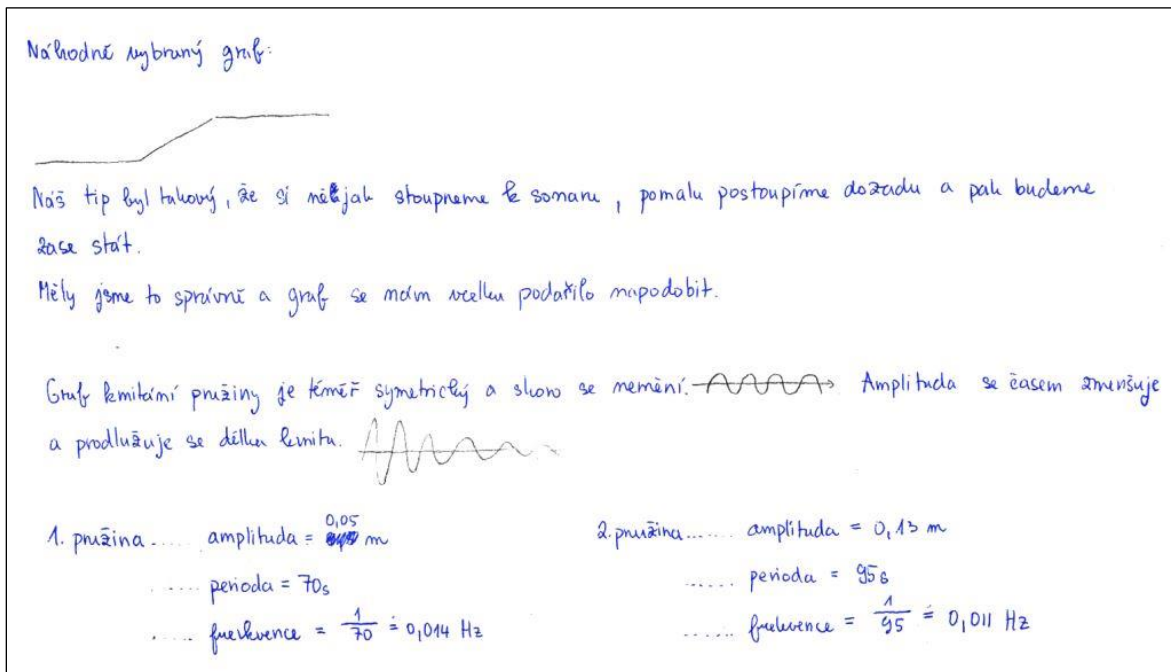 Náhodně vybraný graf:
Náš tip byl takový, že si nějak stoupneme k sonaru, pomalu postoupíme dozadu a pak budeme
zase stát.
Měly jsme to správně a graf se nám vcelku podařilo napodobit.
Graf kmitání pružiny je téměř symetrický a skoro se nemění. Amplituda se časem zmenšuje
a prodlužuje se délka kmitu.
1. pružina ..... amplituda = 0,05 m
..... perioda = 70s
..... frekvence = 1/70 ≐ 0,014 Hz
2. pružina ...... amplituda = 0,13 m
...... perioda = 95s
...... frekvence = 1/95 ≐ 0,011 Hz